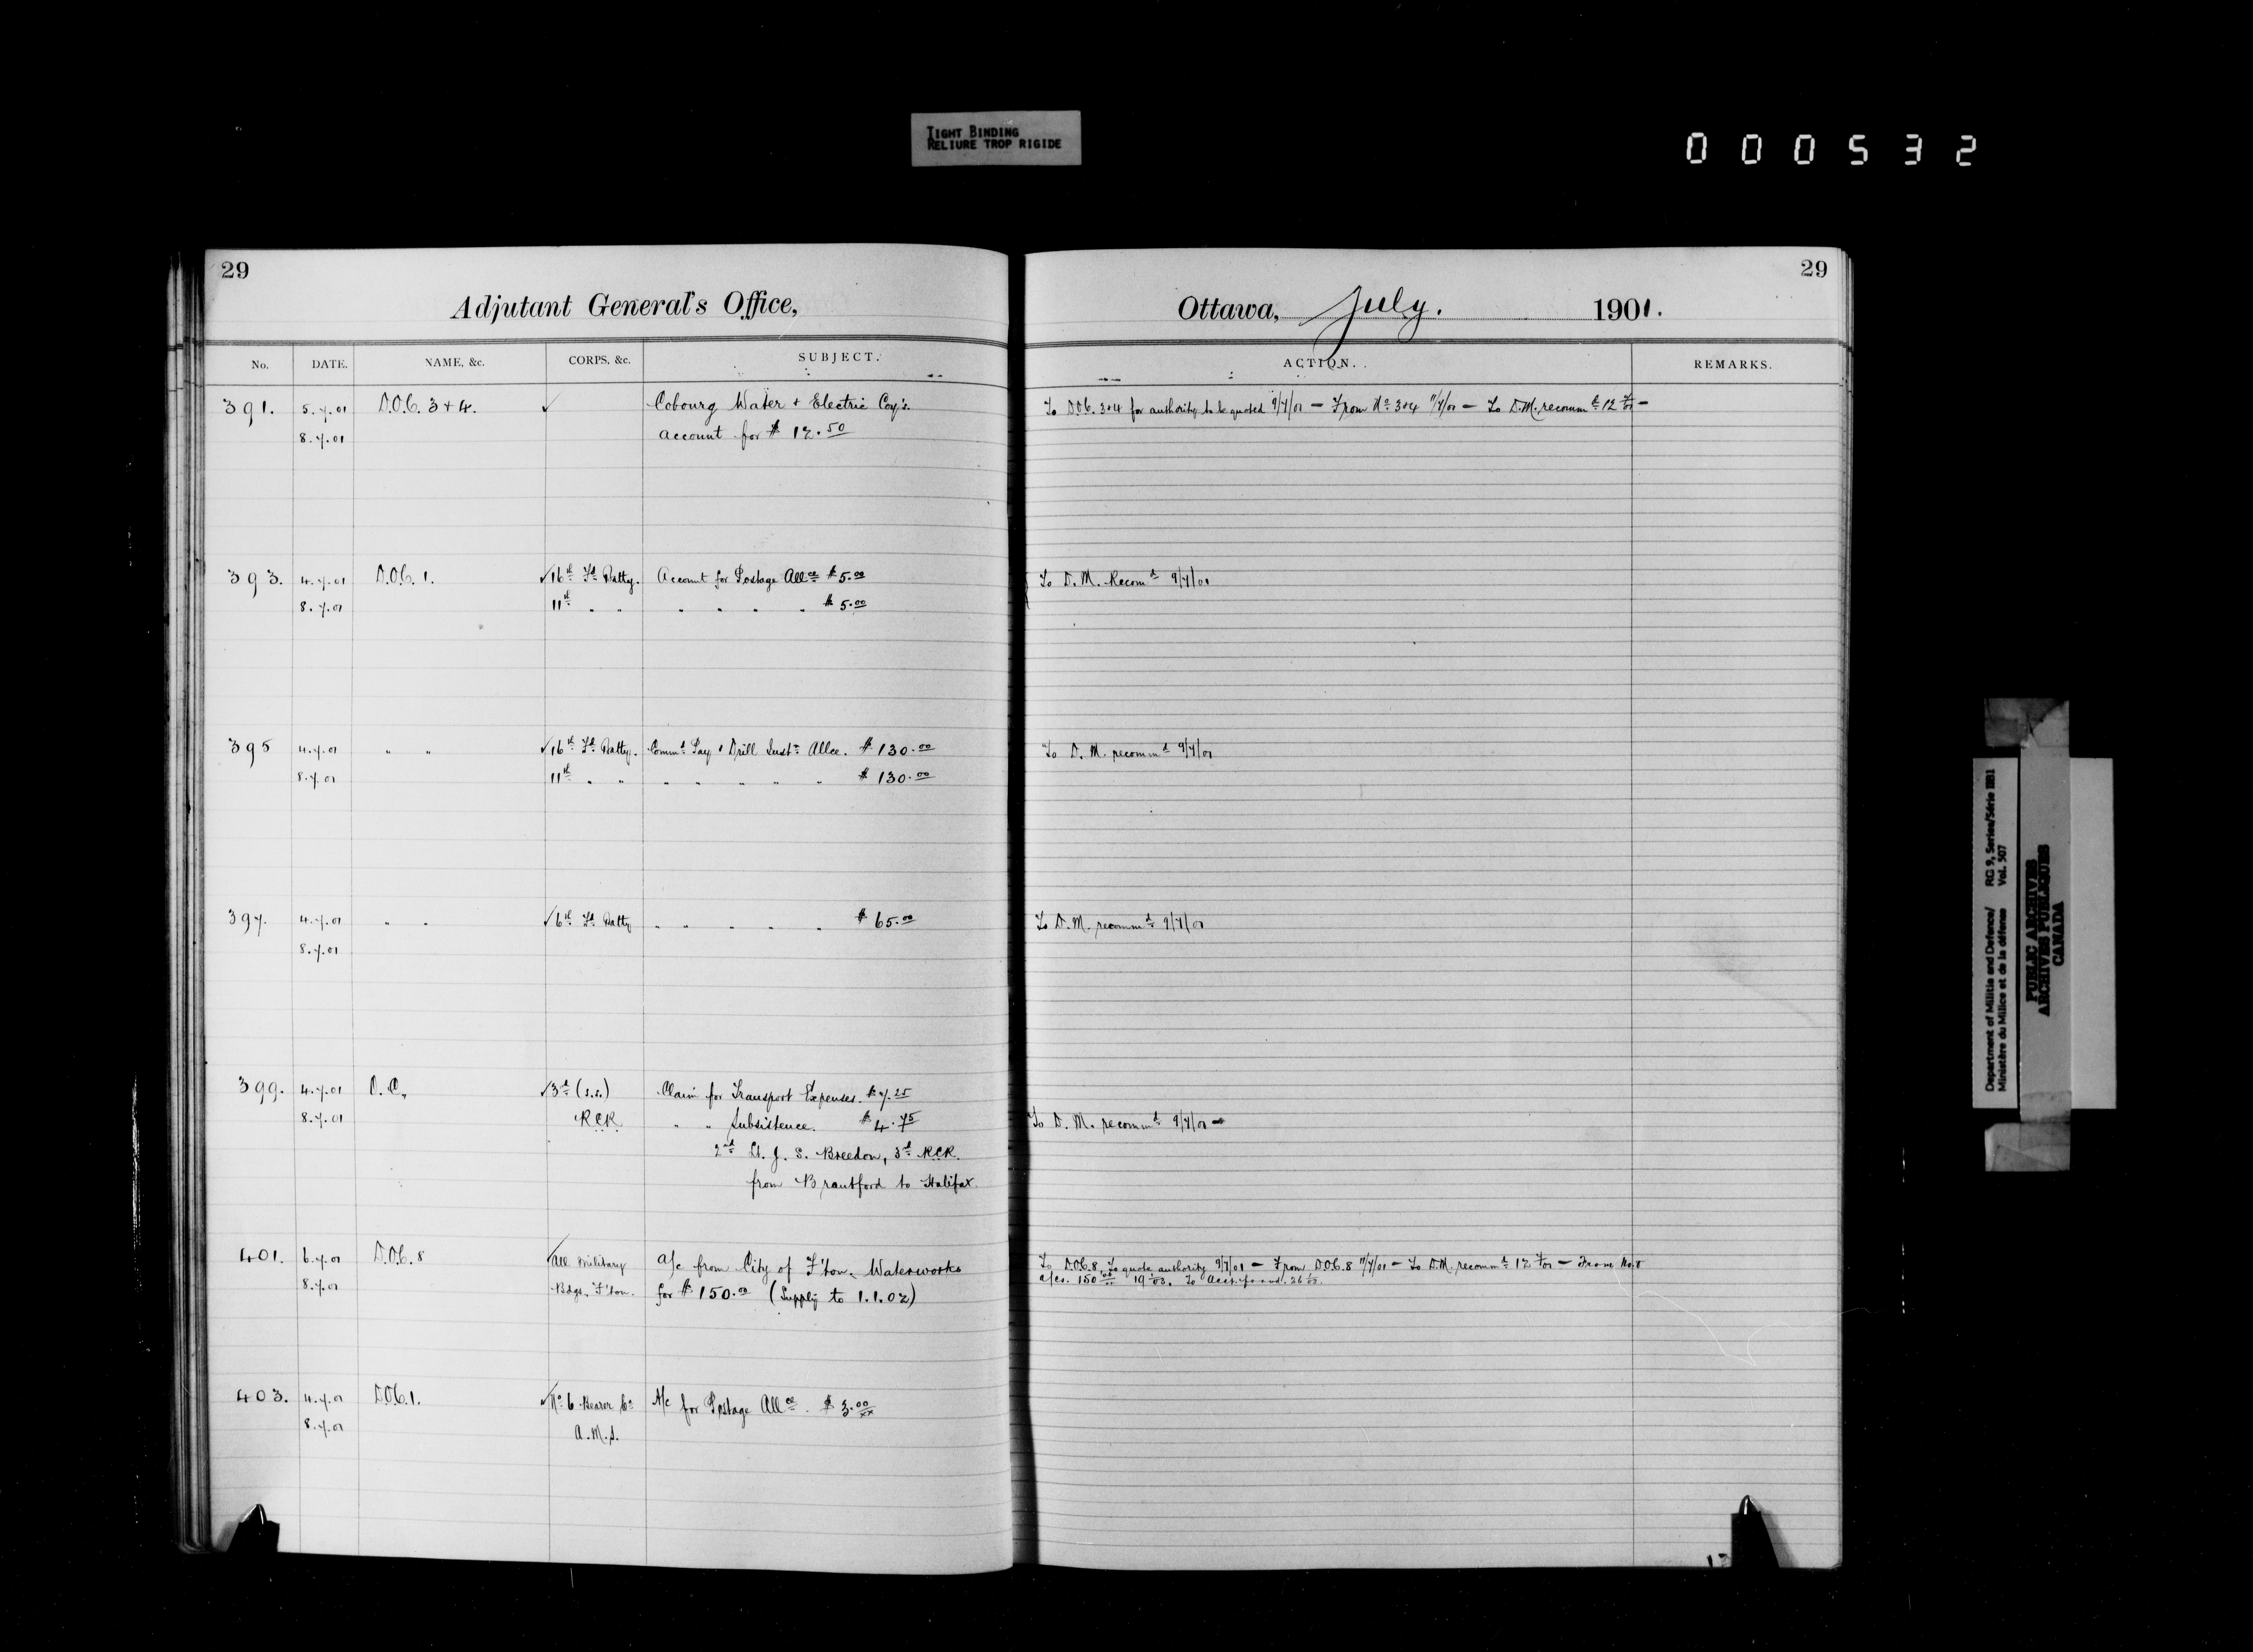 TIGHT BINDING
RELIURE TROP RIGIDE
000532
29
Adjutant General's Office,
No. DATE. NAME, &c. CORPS, &c. SUBJECT.
391. 5.7.01 D.O.C. 3+4. ✓ Cobourg Water + Electric Coy's.
8.7.01 account for $ 12.50
393. 4.7.01 D.O.C. 1. ✓16th Fd Batty. Account for Postage Allce $5.00
8.7.01 11th " " " " " " " $5.00
395 4.7.01 " " ✓16th Fd Batty. Commd Pay + Drill Instn Allce. $130.00
8.7.01 11th " " " " " " " $130.00
397. 4.7.01 " " ✓6th Fd Batty " " " " " $65.00
8.7.01
399. 4.7.01 O.C., ✓3d (s.s.) Claim for Transport Expenses. $7.25
8.7.01 RCR " " Subsistence. $4.75
2nd Lt. J. S. Breedon, 3d RCR.
from Brantford to Halifax.
401. 6.7.01 D.O.C. 8 ✓All Military a/c from City of F'ton. Waterworks
8.7.01 Bdgs. F'ton. for $150.00 (Supply to 1.1.02)
403. 4.7.01 D.O.C.1. ✓No 6 Bearer Co A/c for Postage Allce. $3.00
8.7.01 A.M.S.
29
Ottawa, July. 1901.
ACTION. REMARKS.
To D.O.C. 3+4 for authority to be quoted 9/7/01 — From No 3+4 11/7/01 — To D.M. recommd 12/7/01 —
To D. M. Recomd 9/7/01
To D. M. recommd 9/7/01
To D. M. recommd 9/7/01
To D. M. recommd 9/7/01 —
To D.O.C. 8, to quote authority 9/7/01 — From D.O.C. 8 11/7/01 — To D.M. recommd 12/7/01 — From No. 8
a/cs. 150.00
Department of Militia and Defence/ RG 9, Series/Série IIB1
Ministère du Milice et de la défense Vol. 507
PUBLIC ARCHIVES
ARCHIVES PUBLIQUES
CANADA